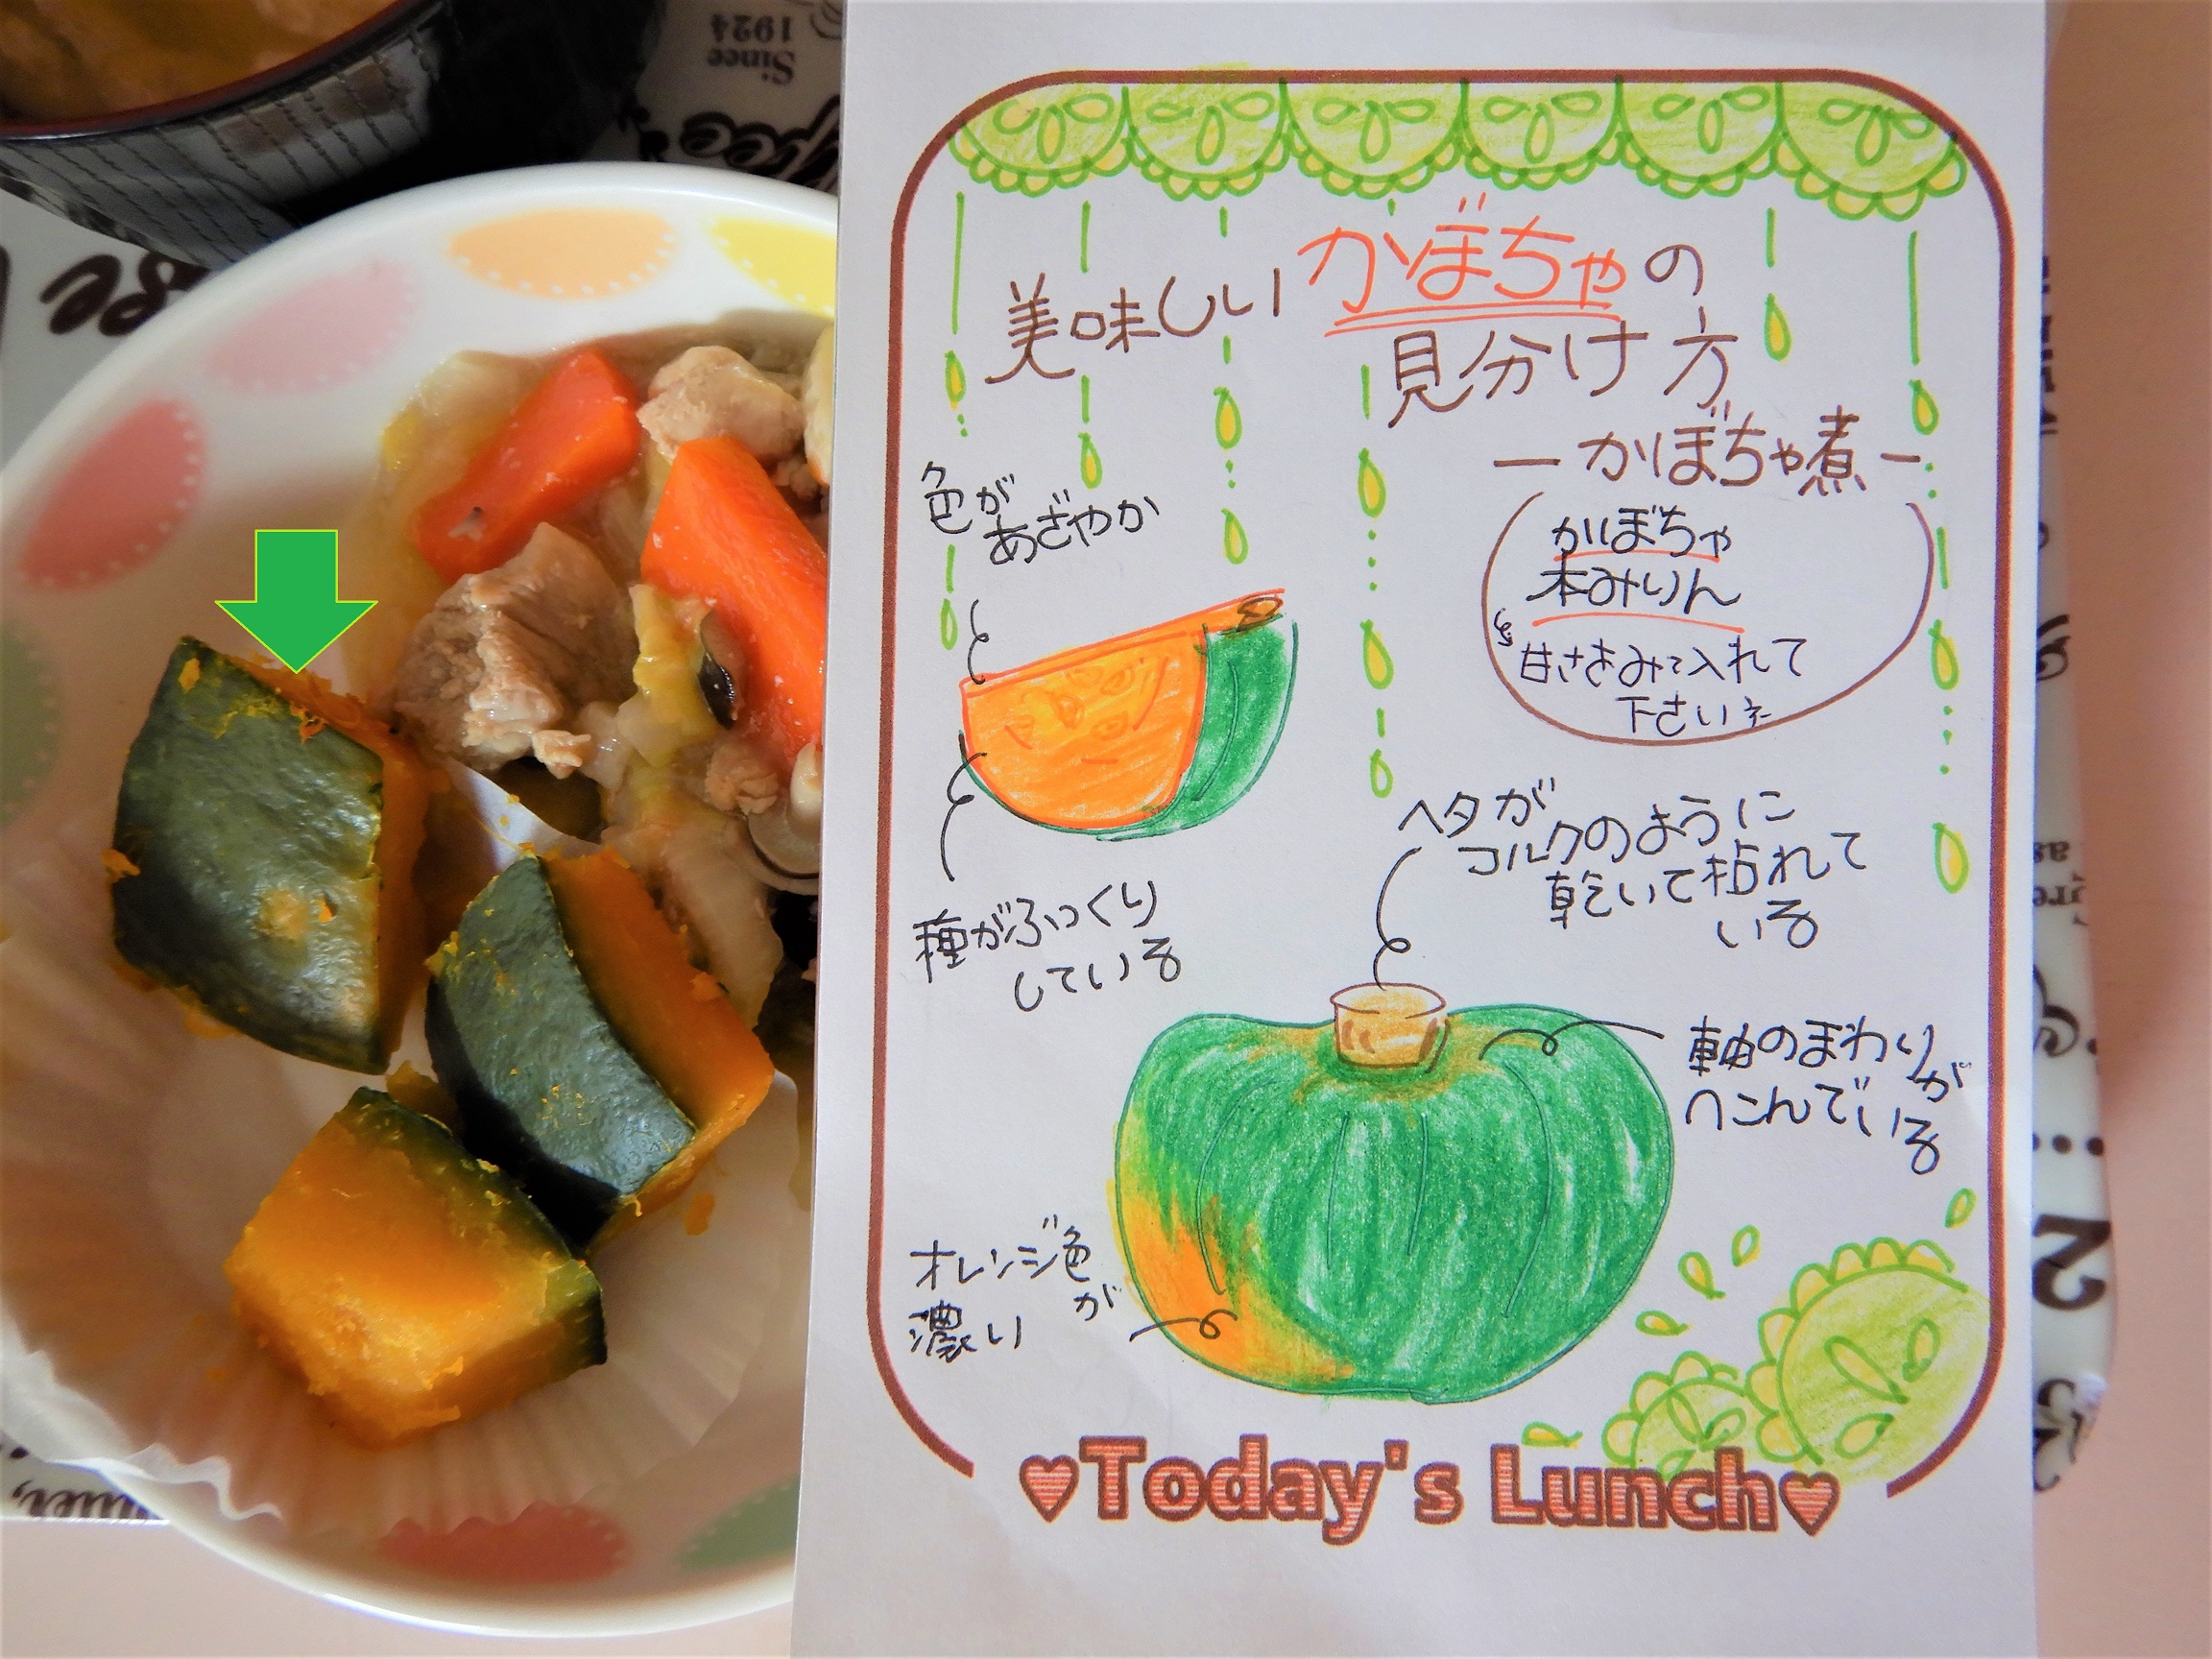 Since
1924
美味しいかぼちゃの
見分け方
ーかぼちゃ煮ー
かぼちゃ
本みりん
甘さをみて入れて
下さいネ
色が
あざやか
種がふっくり
している
ヘタが
コルクのように
乾いて枯れて
いる
軸のまわりが
へこんでいる
オレンジ色が
濃い
♥Today's Lunch♥